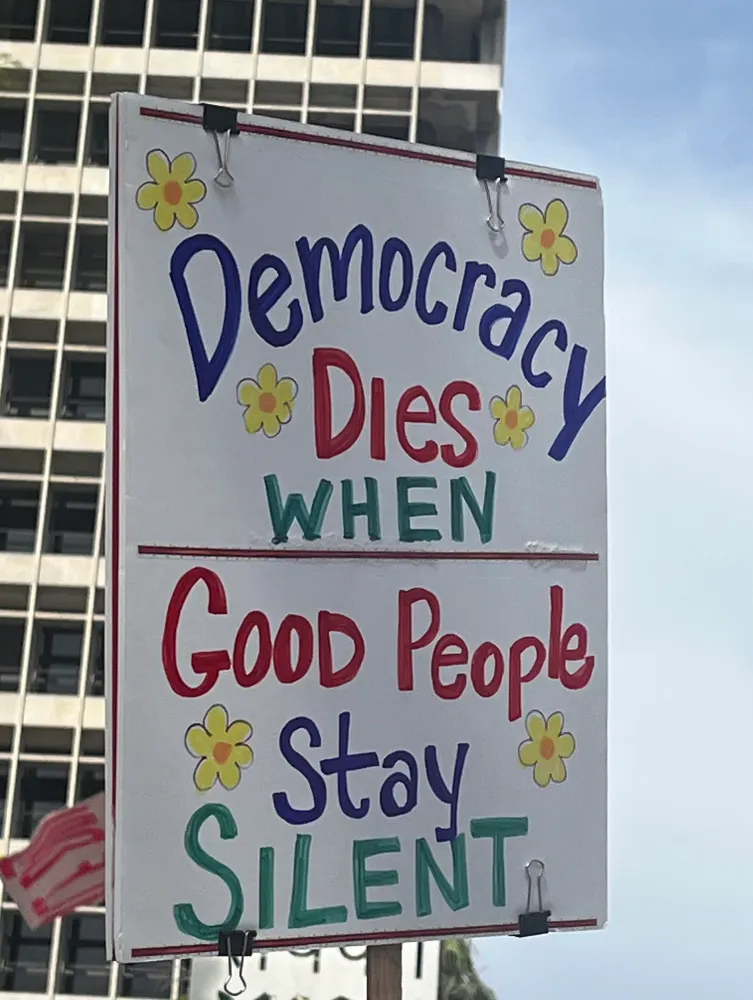 Democracy
Dies
WHEN
Good People
Stay
SILENT